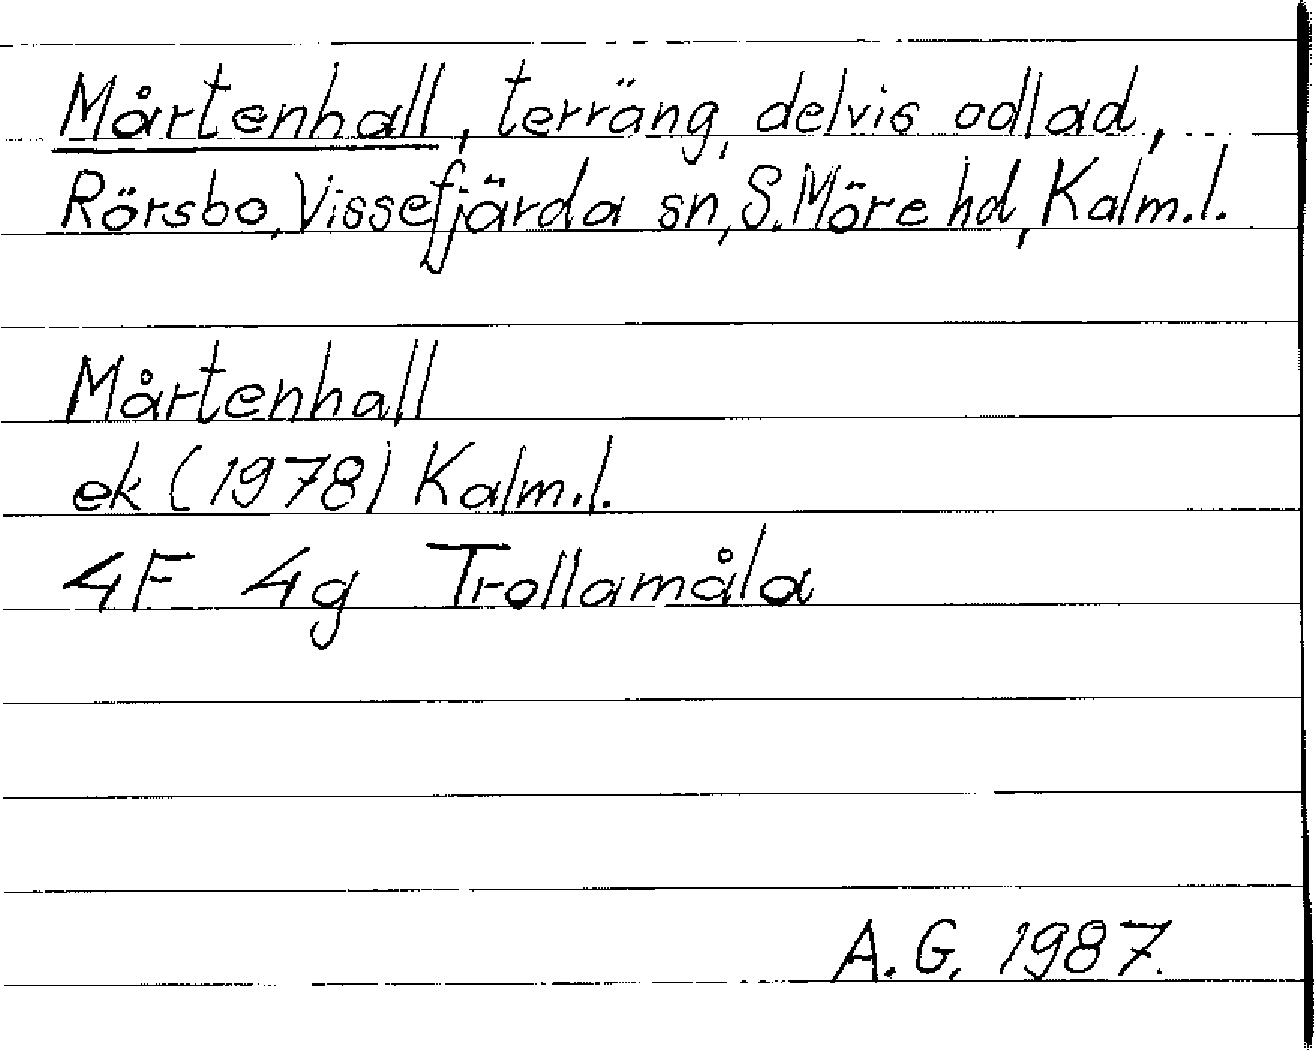 Mårtenhall, terräng, delvis odlad,
Rörsbo, Vissefjärda sn, S. Möre hd, Kalm.l.
Mårtenhall
ek (1978) Kalm.l.
4F 4g Trollamåla
A.G. 1987.